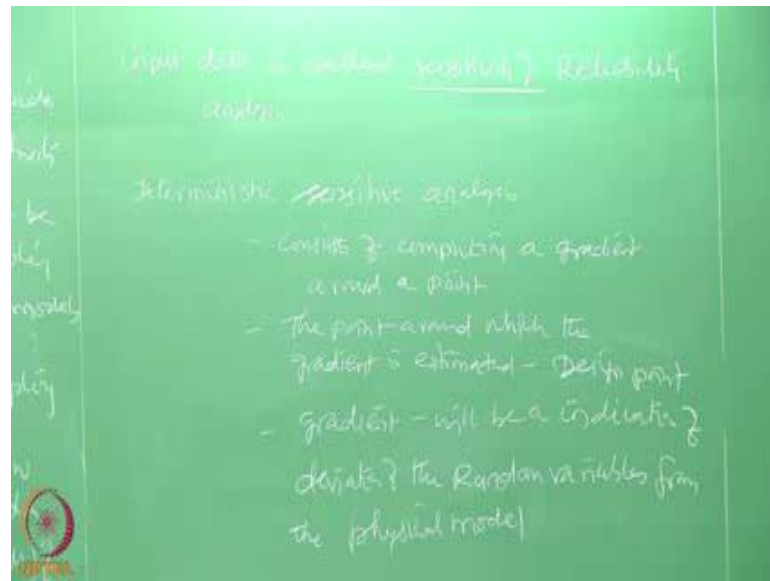 nide
be
models
input data is called sensitivity Reliability
Deterministic sensitive analysis
- consists of computing a gradient
around a point
- The point around which the
gradient is estimated - Design point
- gradient - will be a indicator of
the Random variables from
the physical model
NPTEL